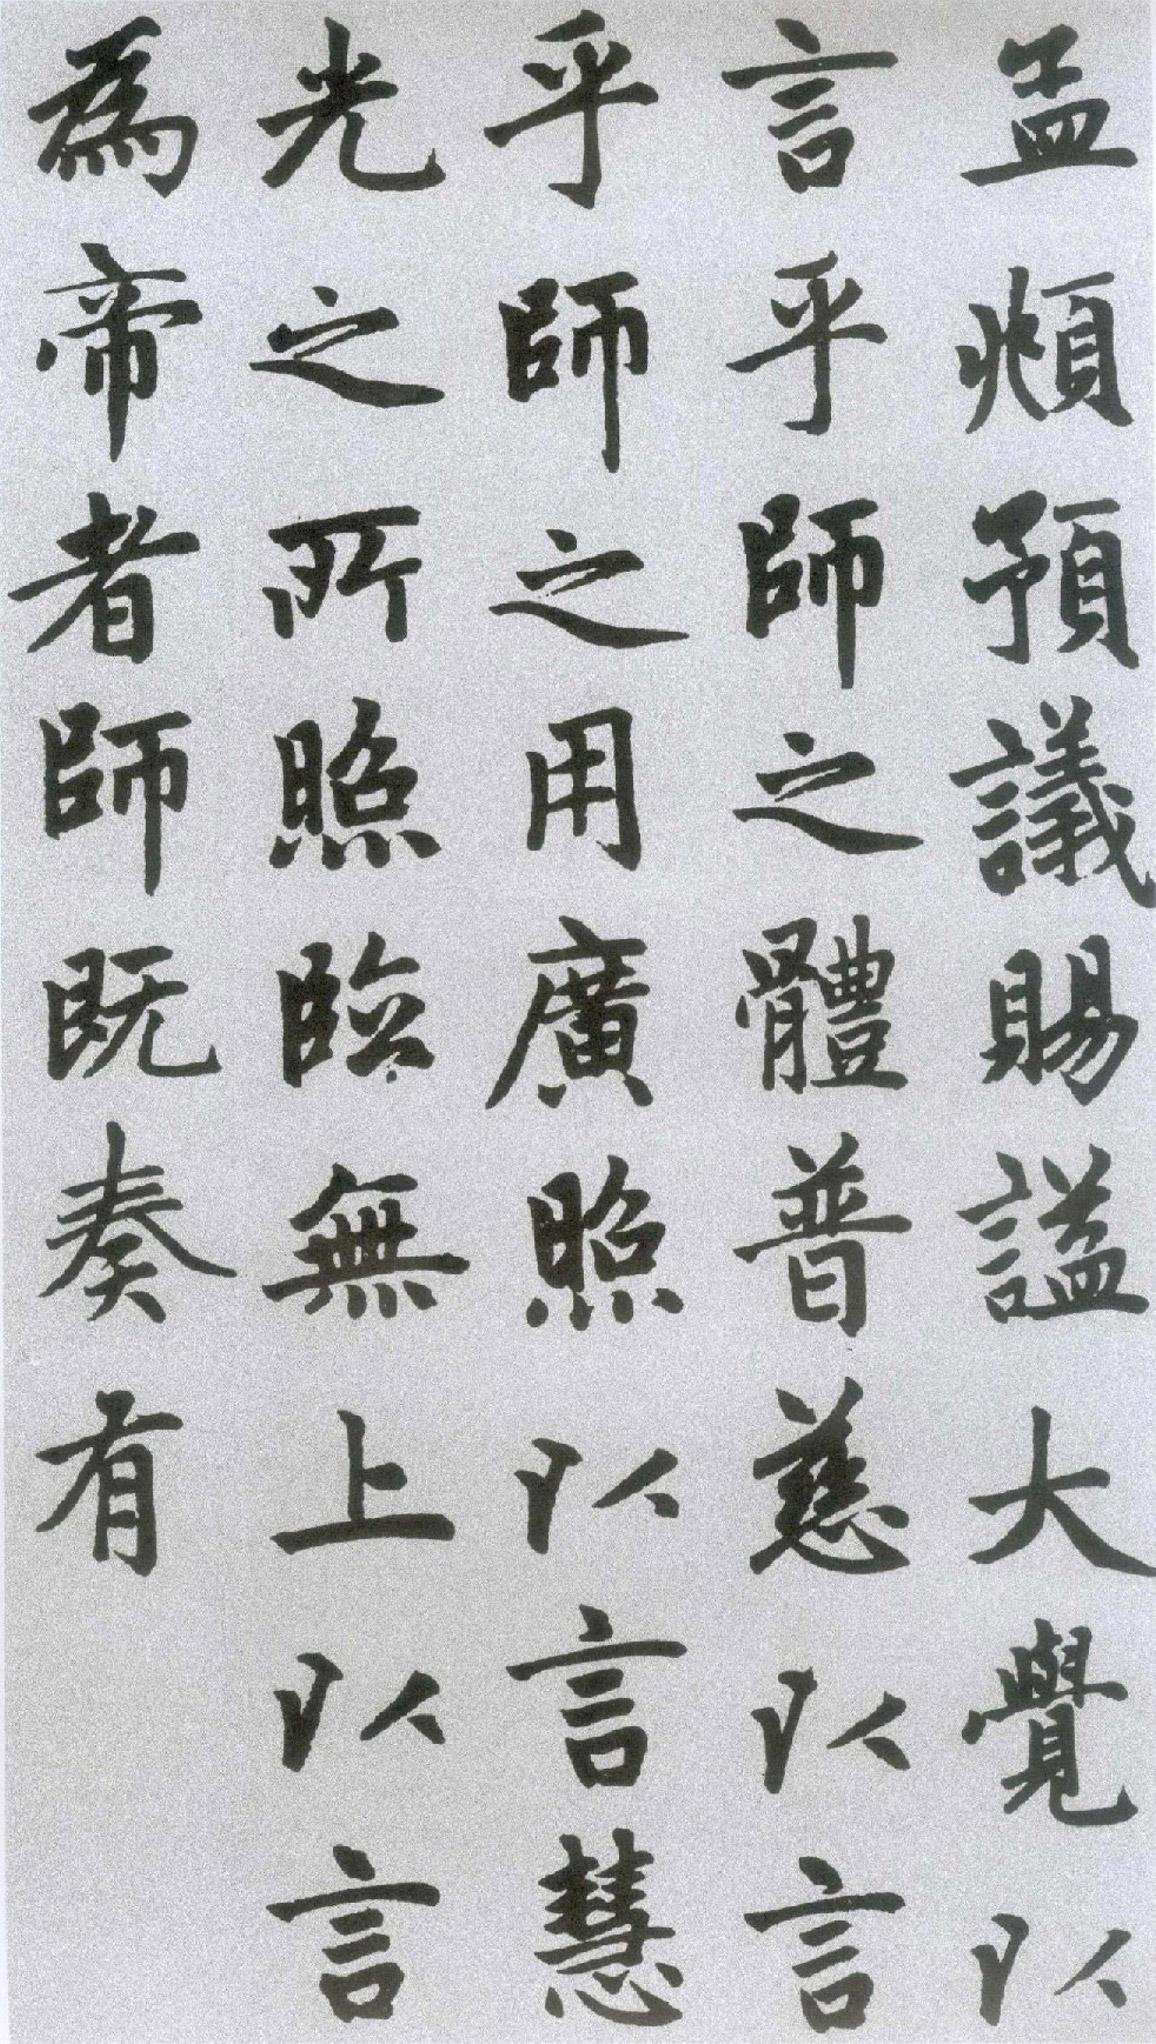 孟頫預議賜謚大覺以
言乎師之體普慈以言
乎師之用廣照以言慧
光之所照臨無上以言
為帝者師既奏有